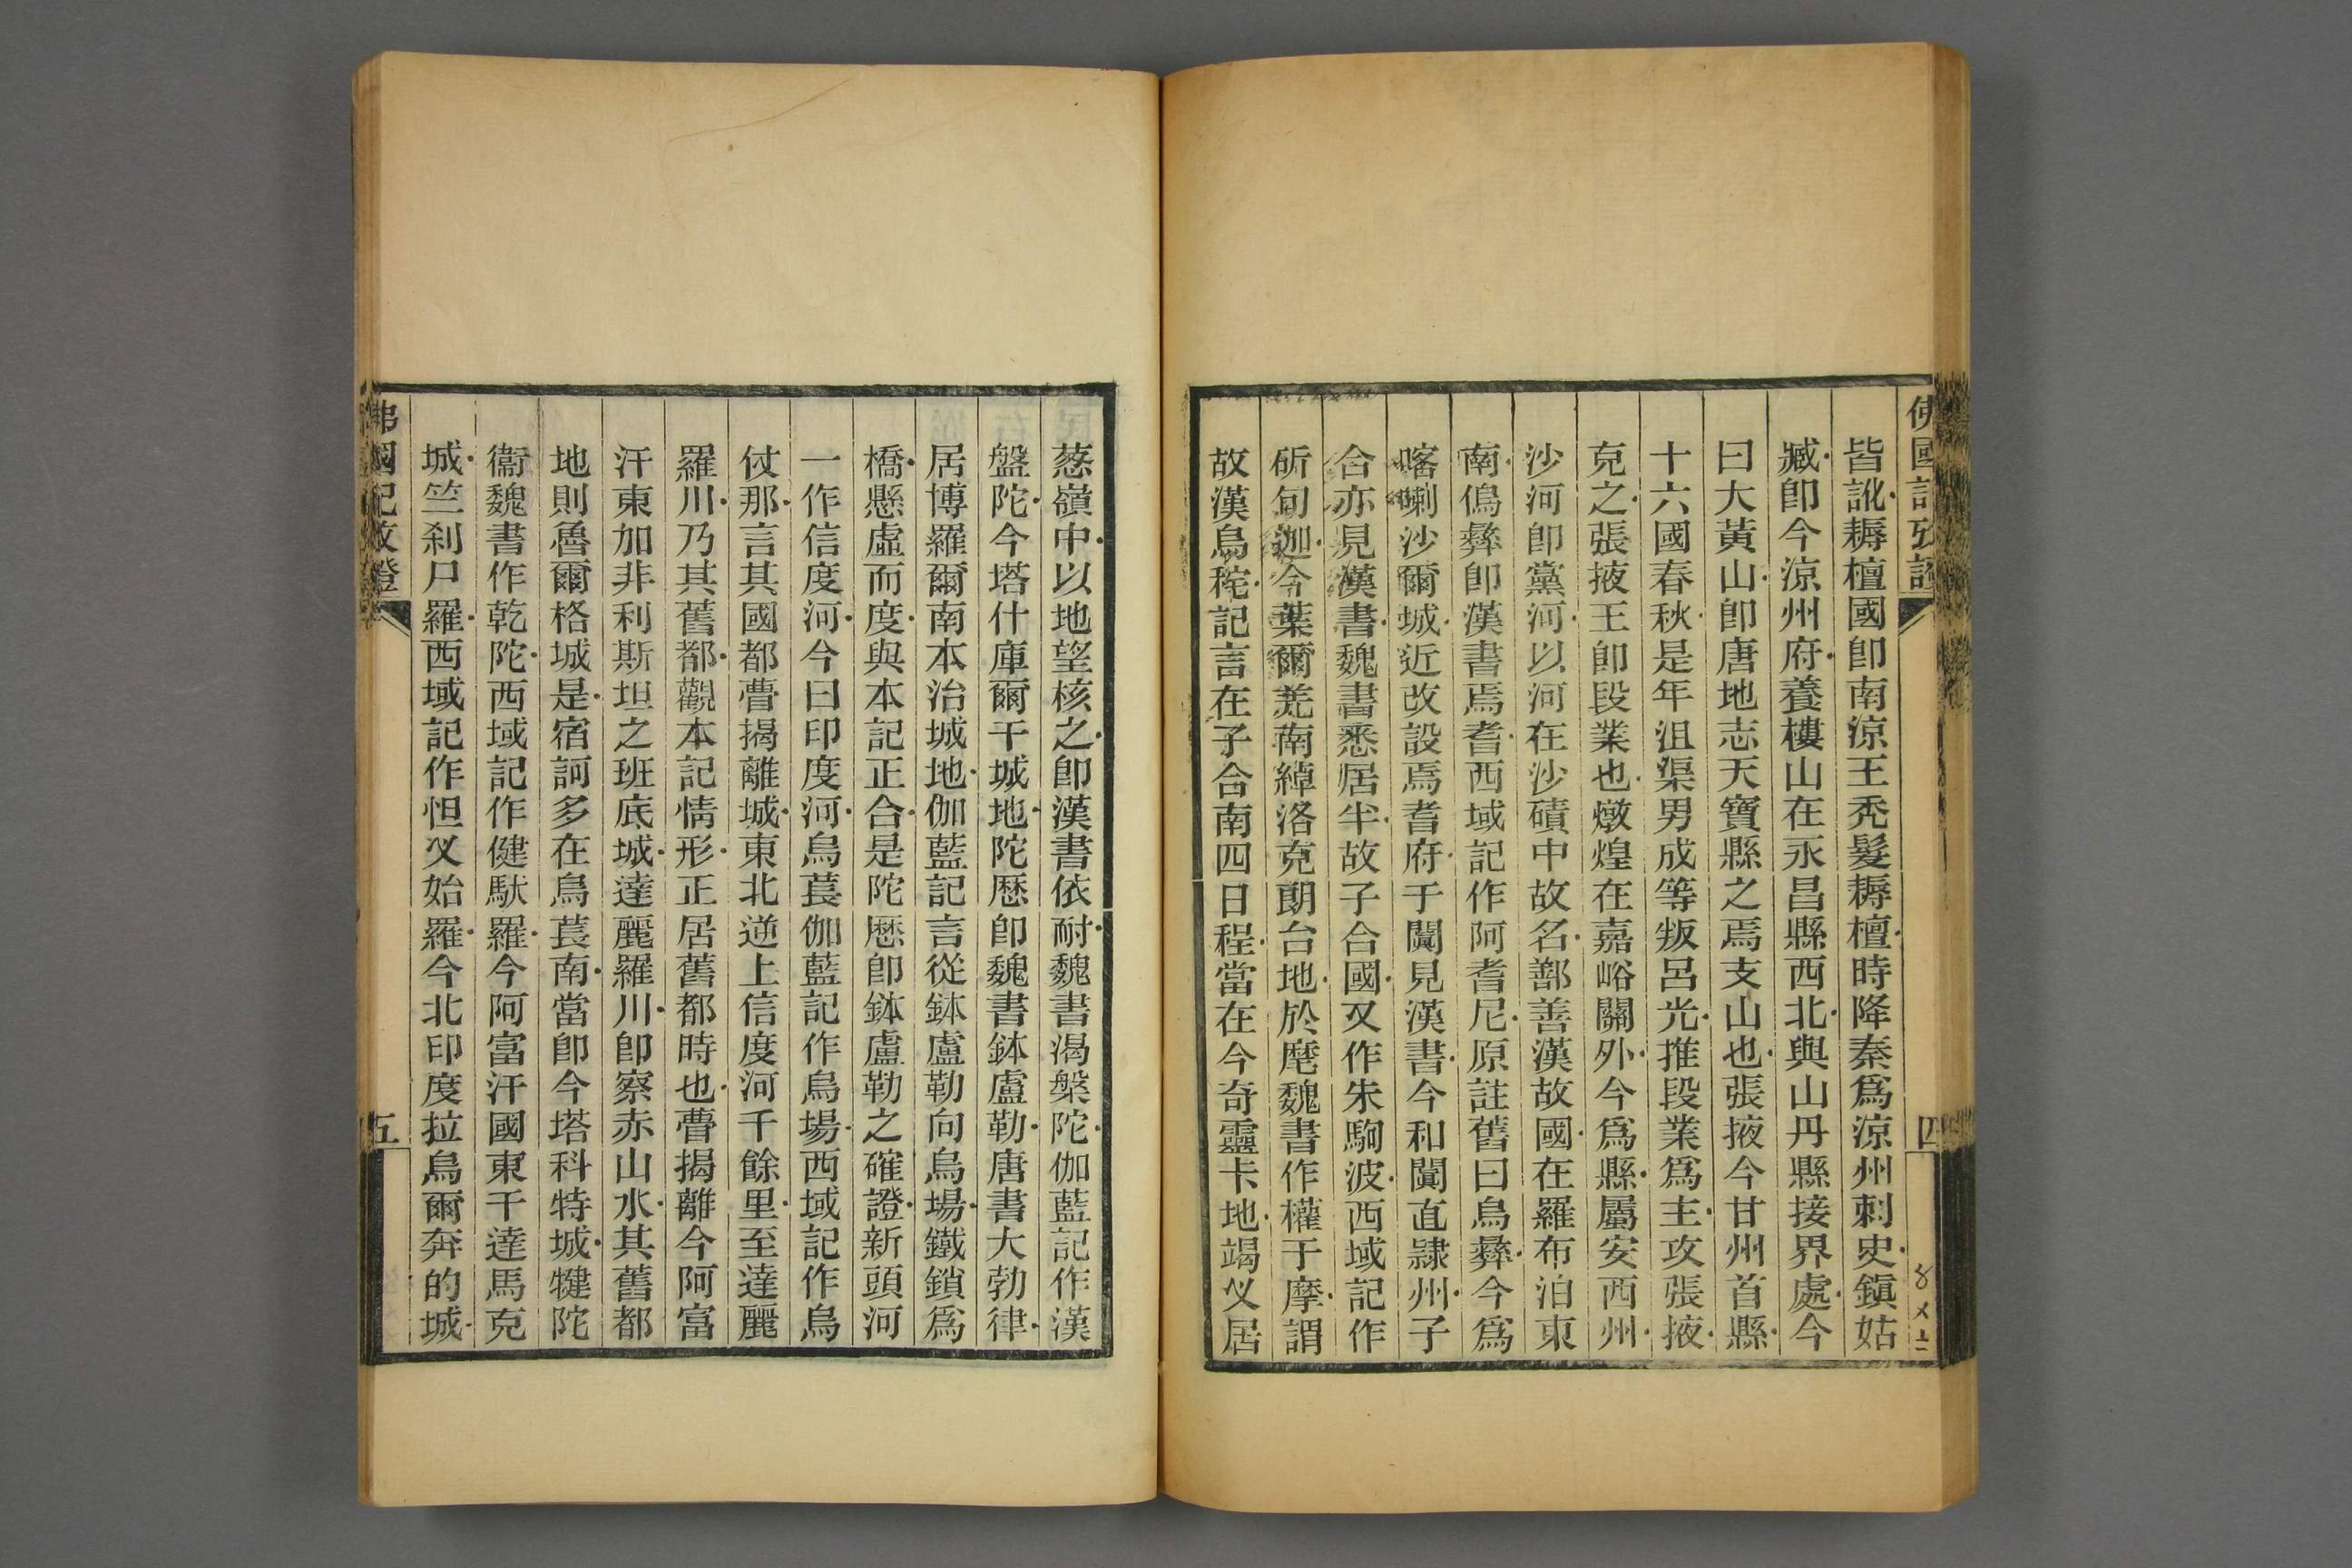 佛國記攷證
四
皆訛耨檀國卽南涼王禿髮耨檀時降秦爲涼州刺史鎭姑
臧卽今涼州府養樓山在永昌縣西北與山丹縣接界處今
曰大黃山卽唐地志天寶縣之焉支山也張掖今甘州首縣
十六國春秋是年沮渠男成等叛呂光推段業爲主攻張掖
克之張掖王卽段業也燉煌在嘉峪關外今爲縣屬安西州
沙河卽黨河以河在沙磧中故名鄯善漢故國在羅布泊東
南㑥彝卽漢書焉耆西域記作阿耆尼原註舊曰烏彝今爲
喀喇沙爾城近改設焉耆府于闐見漢書今和闐直隷州子
合亦見漢書魏書悉居半故子合國又作朱駒波西域記作
斫句迦今葉爾羌南綽洛克朗台地於麾魏書作權于摩謂
故漢烏秅記言在子合南四日程當在今奇靈卡地竭叉居
葱嶺中以地望核之卽漢書依耐魏書渴槃陀伽藍記作漢
盤陀今塔什庫爾干城地陀歷卽魏書鉢盧勒唐書大勃律
居博羅爾南本治城地伽藍記言從鉢盧勒向烏場鐵鎖爲
橋懸虛而度與本記正合是陀歷卽鉢盧勒之確證新頭河
一作信度河今曰印度河烏萇伽藍記作烏場西域記作烏
仗那言其國都瞢揭離城東北逆上信度河千餘里至達麗
羅川乃其舊都觀本記情形正居舊都時也瞢揭離今阿富
汗東加非利斯坦之班底城達麗羅川卽察赤山水其舊都
地則魯爾格城是宿訶多在烏萇南當卽今塔科特城犍陀
衞魏書作乾陀西域記作健馱羅今阿富汗國東干達馬克
城竺刹尸羅西域記作怛叉始羅今北印度拉烏爾奔的城
佛國記攷證
五